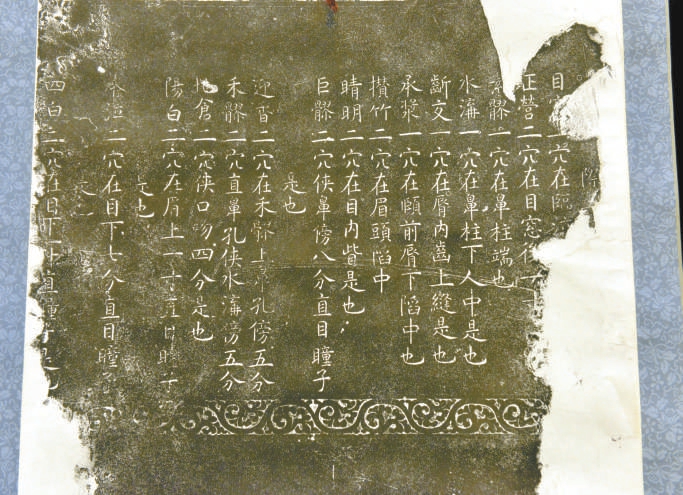 目 二穴在臨
正營二穴在目窓後一寸
素髎一穴在鼻柱端也
水溝一穴在鼻柱下人中是也
齗交一穴在脣内齒上縫是也
承漿一穴在頤前脣下陷中也
攅竹二穴在眉頭陷中
睛明二穴在目内眥是也
巨髎二穴俠鼻傍八分直目瞳子
是也
迎香二穴在禾髎上鼻孔傍五分
禾髎二穴直鼻孔俠水溝傍五分
地倉二穴俠口吻四分是也
陽白二穴在眉上一寸直目瞳子
是也
承泣二穴在目下七分直目瞳子
是也
四白二穴在目下一寸直瞳子是也